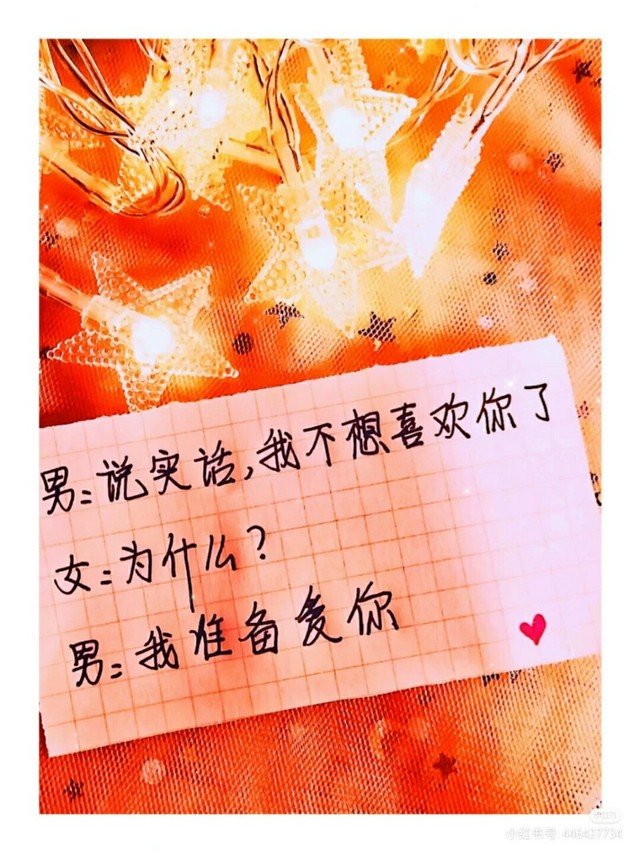 男:说实话,我不想喜欢你了
女:为什么?
男:我准备爱你
小红书号:448427734